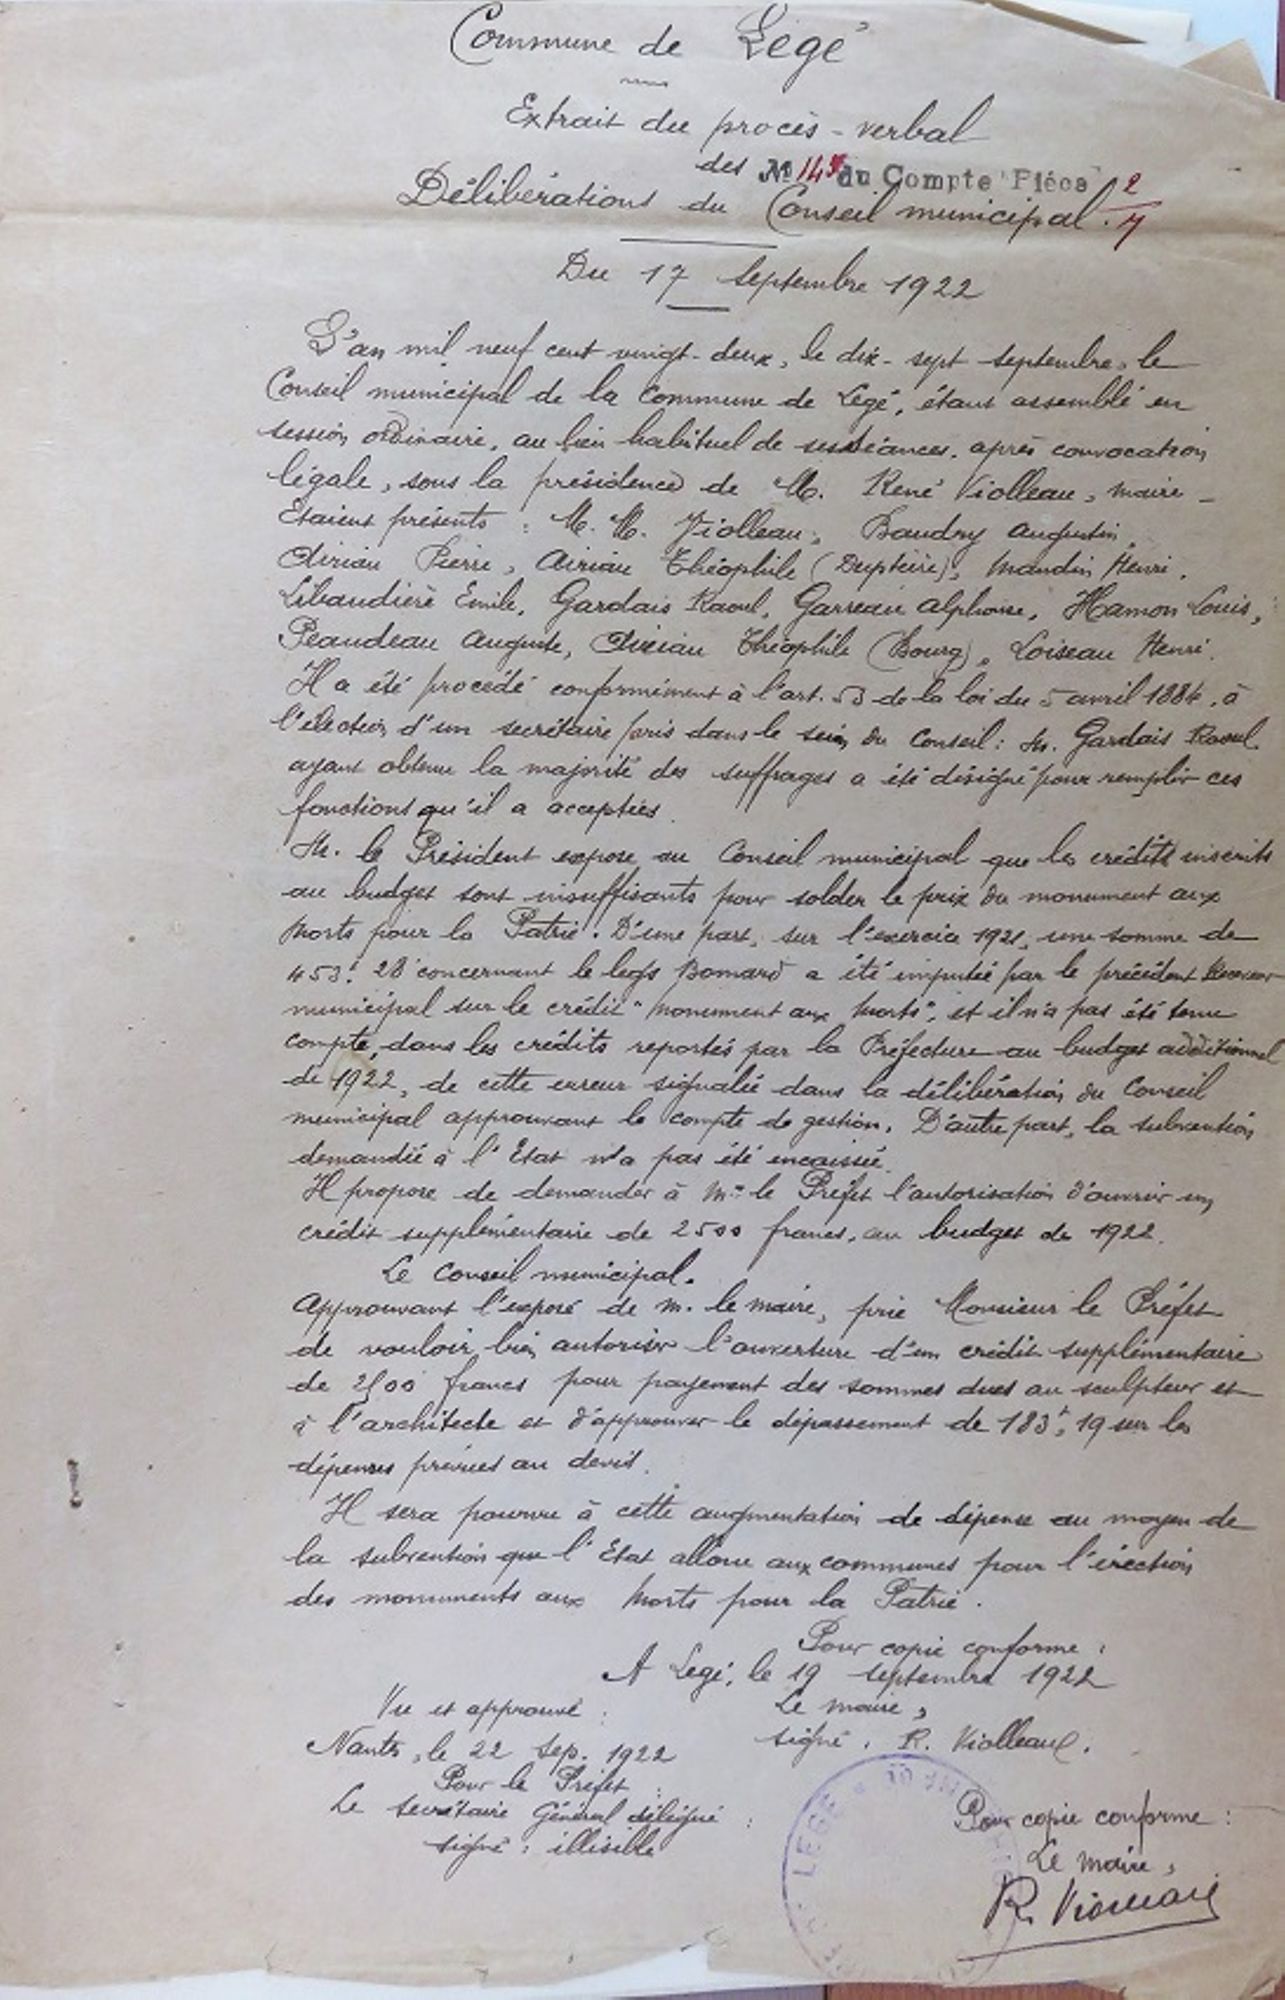 Commune de Légé
Extrait du procès-verbal
des
No 145 du Compte Pièce 2/7
Délibérations du Conseil municipal.
Du 17 septembre 1922
L'an mil neuf cent vingt-deux, le dix-sept septembre, le
Conseil municipal de la commune de Légé, étant assemblé en
session ordinaire, au lieu habituel de ses séances, après convocation
légale, sous la présidence de M. René Violleau, maire -
Etaient présents : M. M. Violleau, Baudry Augustin,
Airiau Pierre, Airiau Théophile (Deptière), Mandin Henri,
Libaudière Emile, Gardais Raoul, Garreau Alphonse, Hamon Louis,
Peaudeau Auguste, Airiau Théophile (Bourg), Loiseau Henri.
Il a été procédé conformément à l'art. 53 de la loi du 5 avril 1884, à
l'élection d'un secrétaire pris dans le sein du Conseil : M. Gardais Raoul
ayant obtenu la majorité des suffrages a été désigné pour remplir ces
fonctions qu'il a acceptées.
M. le Président expose au Conseil municipal que les crédits inscrits
au budget sont insuffisants pour solder le prix du monument aux
Morts pour la Patrie. D'une part, sur l'exercice 1921, une somme de
453f 28 concernant le legs Bomard a été imputée par le précédent Receveur
municipal sur le crédit "Monument aux Morts", et il n'a pas été tenu
compte, dans les crédits reportés par la Préfecture au budget additionnel
de 1922, de cette erreur signalée dans la délibération du Conseil
municipal approuvant le compte de gestion. D'autre part, la subvention
demandée à l'Etat n'a pas été encaissée.
Il propose de demander à Mr le Préfet l'autorisation d'ouvrir un
crédit supplémentaire de 2500 francs, au budget de 1922.
Le Conseil municipal.
Approuvant l'exposé de M. le maire, prie Monsieur le Préfet
de vouloir bien autoriser l'ouverture d'un crédit supplémentaire
de 2500 francs pour payement des sommes dues au sculpteur et
à l'architecte et d'approuver le dépassement de 183f,19 sur les
dépenses prévues au devis.
Il sera pourvu à cette augmentation de dépense au moyen de
la subvention que l'Etat alloue aux communes pour l'érection
des monuments aux Morts pour la Patrie.
Pour copie conforme :
A Légé, le 19 septembre 1922
Le maire,
signé : R. Violleau.
Vu et approuvé :
Nantes, le 22 sep. 1922
Pour le Préfet :
Le secrétaire Général délégué :
signé : illisible
LEGE
Pour copie conforme :
Le maire,
R. Violleau